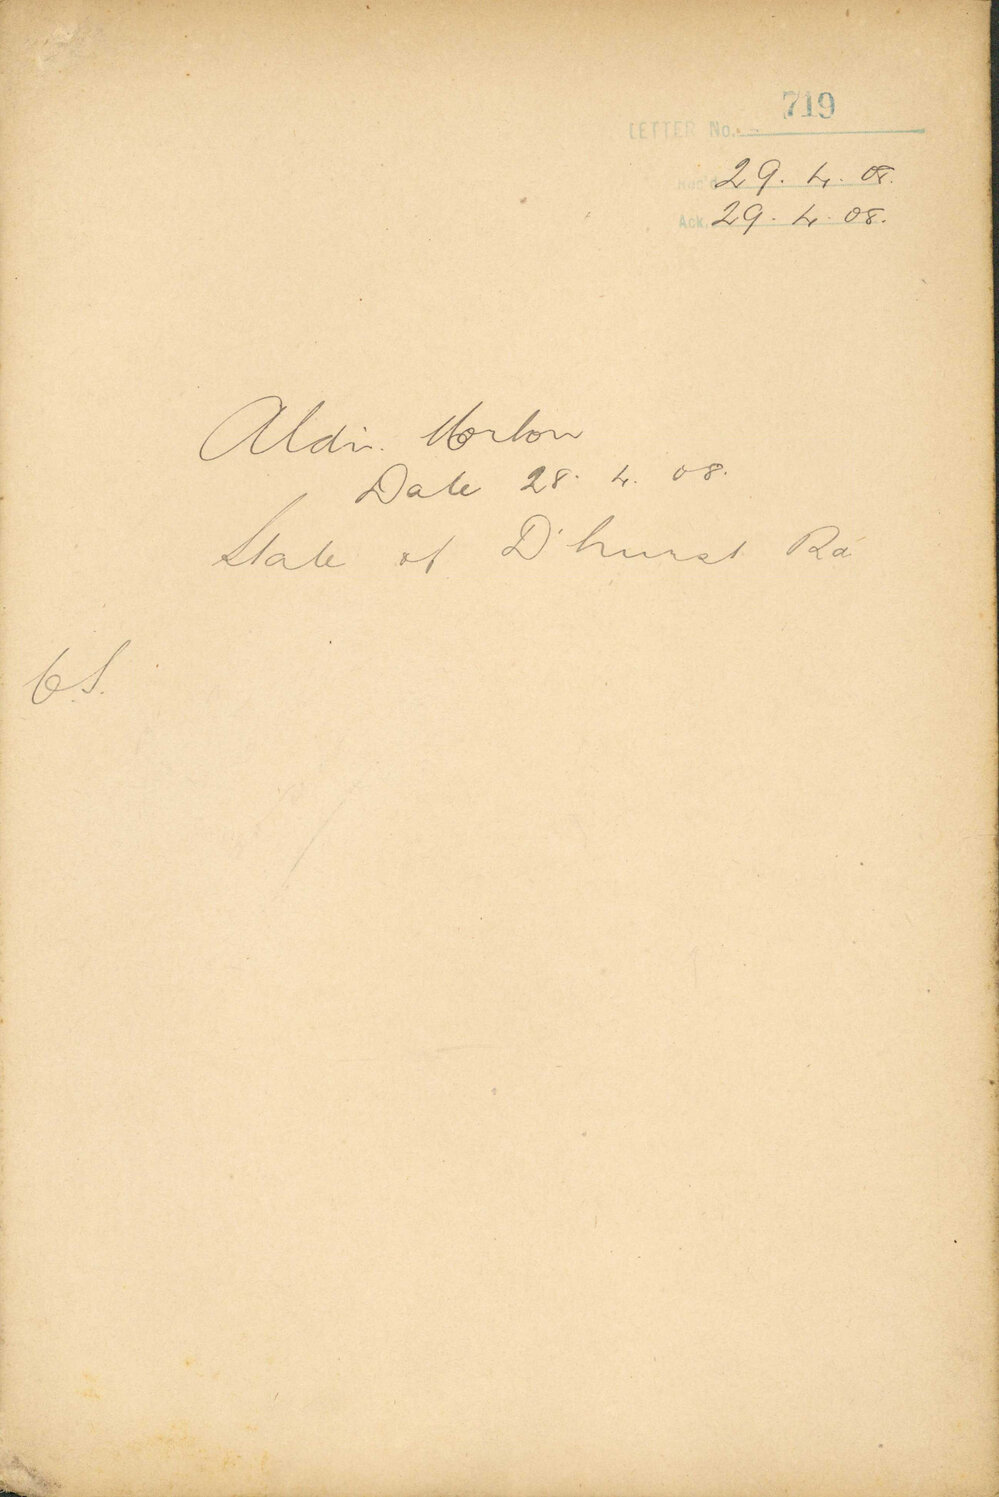 LETTER No. 719
Rec'd 29. 4. 08.
Ack. 29. 4. 08.
Aldn. Morton
Date 28. 4. 08.
State of D'hurst Rd
C.S.